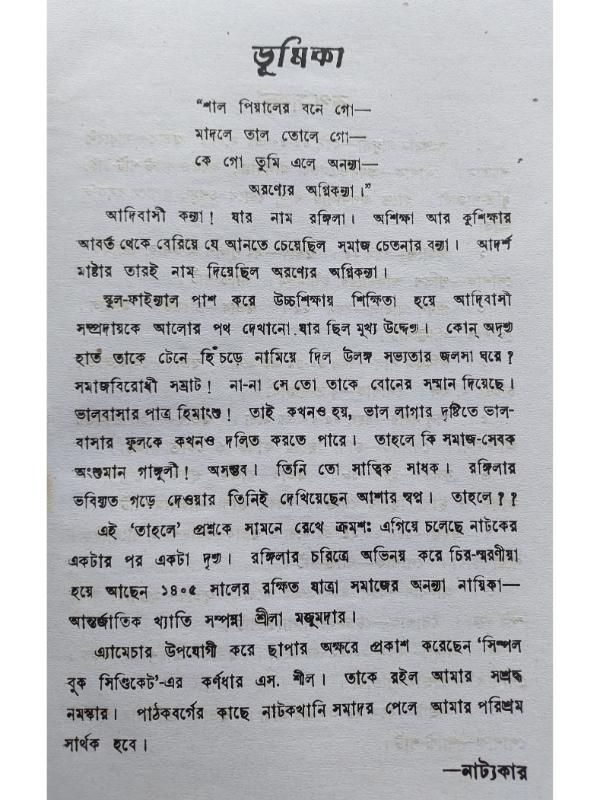 ভূমিকা
“শাল পিয়ালের বনে গো—
মাদলে তাল তোলে গো—
কে গো তুমি এলে অনন্যা—
অরণ্যের অগ্নিকন্যা।”
আদিবাসী কন্যা! যার নাম রঙ্গিলা। অশিক্ষা আর কুশিক্ষার
আবর্ত থেকে বেরিয়ে যে আনতে চেয়েছিল সমাজ চেতনার বন্যা। আদর্শ
মাষ্টার তারই নাম দিয়েছিল অরণ্যের অগ্নিকন্যা।
স্কুল-ফাইন্যাল পাশ করে উচ্চশিক্ষায় শিক্ষিতা হয়ে আদিবাসী
সম্প্রদায়কে আলোর পথ দেখানো যার ছিল মুখ্য উদ্দেশ্য। কোন্ অদৃশ্য
হাত তাকে টেনে হিঁচড়ে নামিয়ে দিল উলঙ্গ সভ্যতার জলসা ঘরে?
সমাজবিরোধী সম্রাট! না-না সে তো তাকে বোনের সম্মান দিয়েছে।
ভালবাসার পাত্র হিমাংশু! তাই কখনও হয়, ভাল লাগার দৃষ্টিতে ভাল-
বাসার ফুলকে কখনও দলিত করতে পারে। তাহলে কি সমাজ-সেবক
অংশুমান গাঙ্গুলী! অসম্ভব। তিনি তো সাত্বিক সাধক। রঙ্গিলার
ভবিষ্যত গড়ে দেওয়ার তিনিই দেখিয়েছেন আশার স্বপ্ন। তাহলে??
এই ‘তাহলে’ প্রশ্নকে সামনে রেখে ক্রমশঃ এগিয়ে চলেছে নাটকের
একটার পর একটা দৃশ্য। রঙ্গিলার চরিত্রে অভিনয় করে চির-স্মরণীয়া
হয়ে আছেন ১৪০৫ সালের রক্ষিত যাত্রা সমাজের অনন্যা নায়িকা—
আন্তর্জাতিক খ্যাতি সম্পন্না শ্রীলা মজুমদার।
এ্যামেচার উপযোগী করে ছাপার অক্ষরে প্রকাশ করেছেন ‘সিম্পল
বুক সিণ্ডিকেট’-এর কর্ণধার এস. শীল। তাকে রইল আমার সশ্রদ্ধ
নমস্কার। পাঠকবর্গের কাছে নাটকখানি সমাদর পেলে আমার পরিশ্রম
সার্থক হবে।
—নাট্যকার